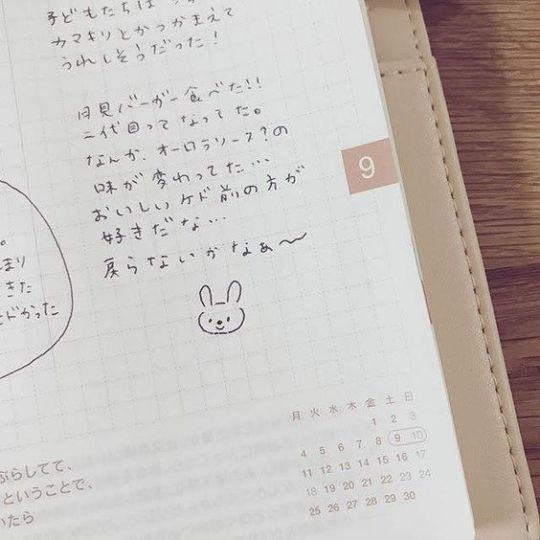 子どもたちは
カマキリとかつかまえて
うれしそうだった！
月見バーガー食べた!!
二代目ってなってた。
なんか、オーロラソース?の
味が変わってた…
おいしいケド前の方が
好きだな…
戻らないかなぁ〜
。
まり
きた
ドかった
9
ぶらしてて、
ということで、
いたら
月 火 水 木 金 土 日
1 2 3
4 5 6 7 8 9 10
11 12 13 14 15 16 17
18 19 20 21 22 23 24
25 26 27 28 29 30